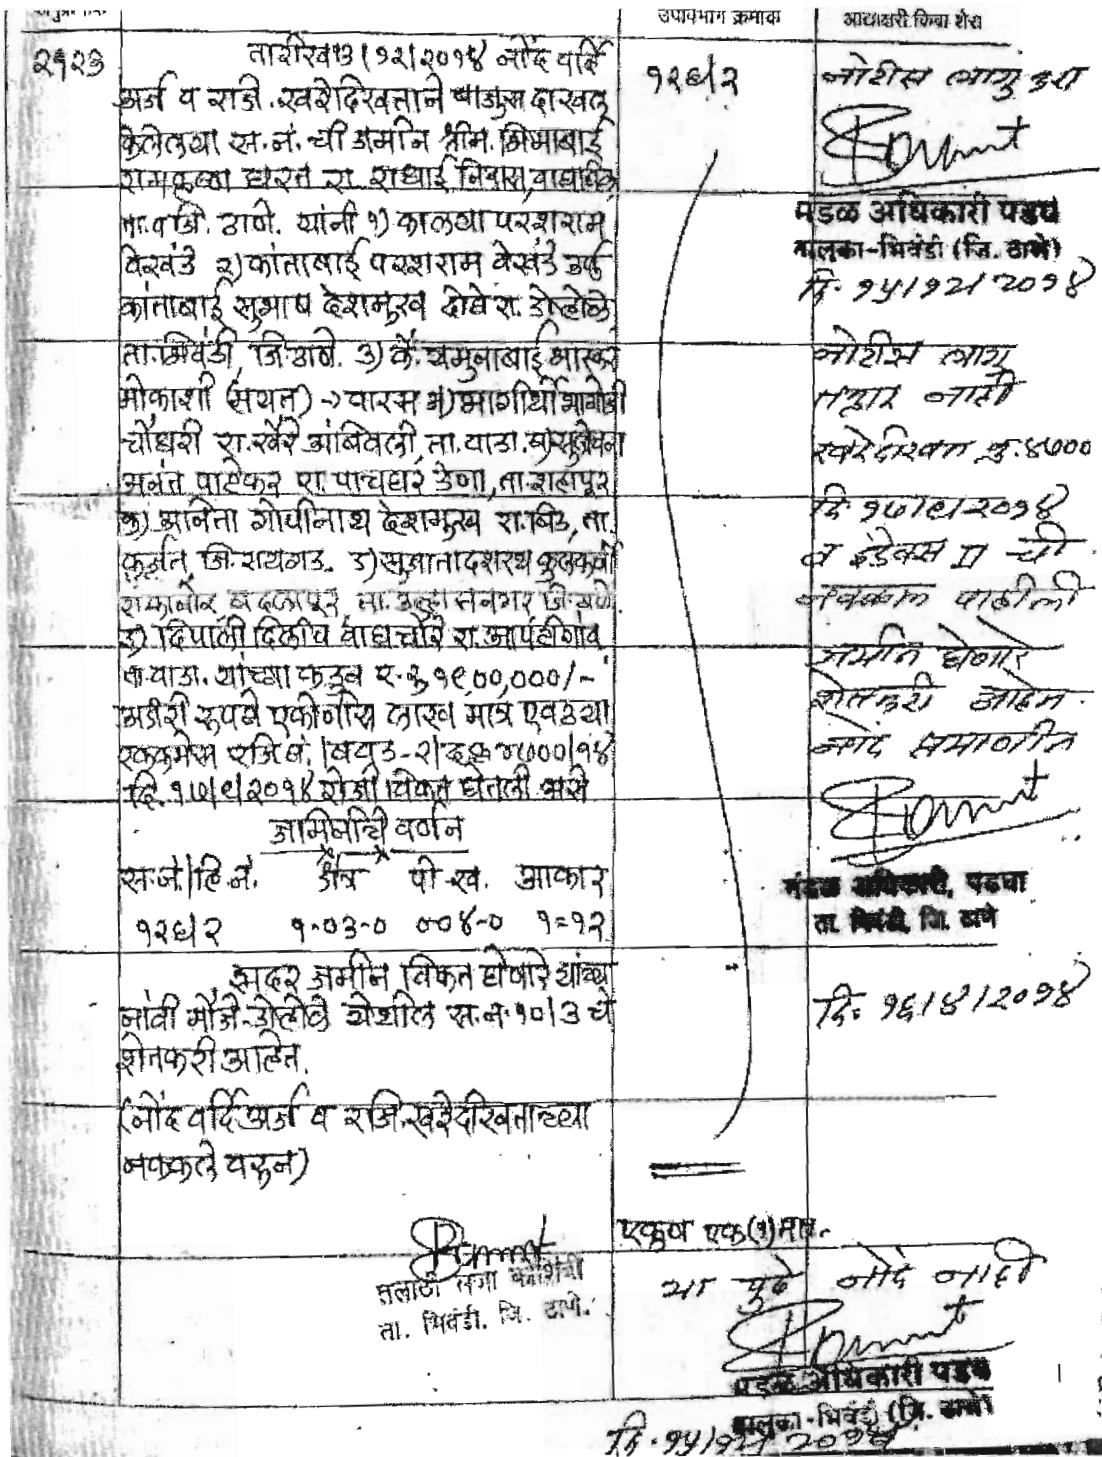 उपविभाग क्रमांक
आद्याक्षरी किंवा शेरा
२१२३
तारीख ३/१२/२०१४ नोंद वर्दि
अर्ज व राजी. खरेदिखताने बाजुस दाखल
केलेल्या स.नं. ची जमीन श्रीम. भिमाबाई
रामकृष्ण घरत रा. राधाई निवास,
ता. व जि. ठाणे. यांनी १) काळ्या परशराम
वेखंडे २) कांताबाई परशराम वेखंडे उर्फ
कांताबाई सुभाष देशमुख दोघे रा.
ता. भिवंडी, जि. ठाणे. ३) कै. यमुनाबाई भास्कर
मोकाशी (मयत) → वारस अ) भागीर्थी
चौधरी रा. खैरे आंबिवली, ता. वाडा. ब)
अनंत पाटेकर रा. ता. शहापूर
क) अनिता गोपीनाथ देशमुख रा. ता.
कर्जत, जि. रायगड. ड) सुजाता दशरथ कुळकर्णी
बदलापूर, ता. उल्हासनगर जि. ठाणे.
इ) दिपाली दिलीप वाघचौरे रा.
ता. वाडा. यांच्या कडुन र. रु १९००,०००/-
अक्षरी रुपये एकोणीस लाख मात्र एवढ्या
रक्कमेस रजि नं. ४७००/१४
दि. १७/९/२०१४ रोजी विकत घेतली असे
जमिनीचे वर्णन
स.नं./हि.नं. क्षेत्र पो.ख. आकार
१२६/२ १-०३-० ०-०४-० १=१२
सदर जमीन विकत घेणारे यांच्या
नांवी मौजे येथील स.नं. १०/३ चे
शेतकरी आहेत.
(नोंद वर्दि अर्ज व रजि. खरेदीखताच्या
नक्कले वरुन)
तलाठी सजा
ता. भिवंडी. जि. ठाणे.
१२६/२
एकुण एक (१) मात्र.
नोटीस लागु
मंडळ अधिकारी पडघे
तालुका-भिवंडी (जि. ठाणे)
दि. १५/१२/२०१४
नोटीस लागु
तक्रार नाही
खरेदीखत क्र. ४७००
दि १७/९/२०१४
व इंडेक्स II ची
नक्कल पाहीली
जमीन घेणारे
शेतकरी आहेत
नोंद प्रमाणीत
मंडळ अधिकारी, पडघा
ता. भिवंडी, जि. ठाणे
दि. १६/४/२०१४
या पुढे नोंद नाही
मंडळ अधिकारी पडघे
तालुका-भिवंडी (जि. ठाणे)
दि. १५/१२/२०१४